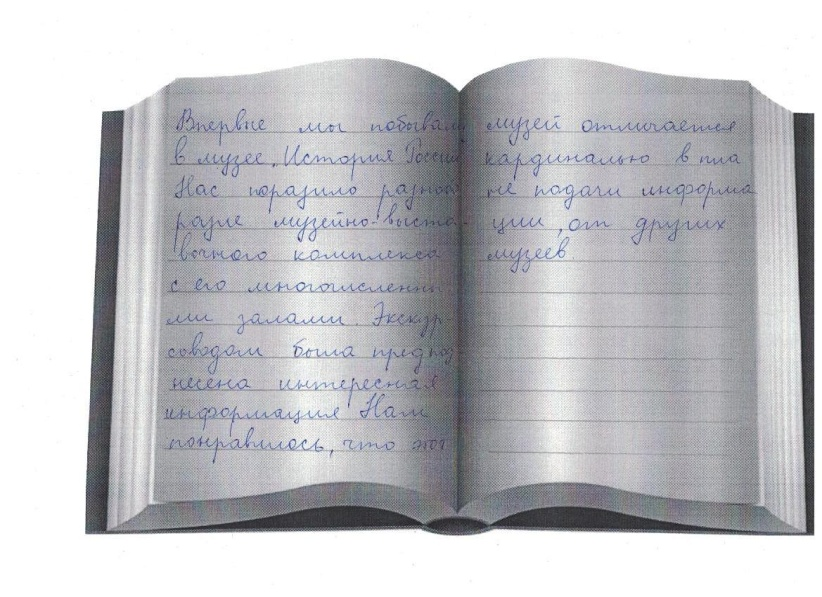 Впервые мы побывали
в музее „История России
Нас поразило разнооб
разие музейно-выста-
вочного комплекса
с его многочисленны-
ми залами. Экскур-
соводом была предпод-
несена интересная
информация Нам
понравилось, что этот
музей отличается
кардинально в пла
не подачи информа
ции, от других
музеев